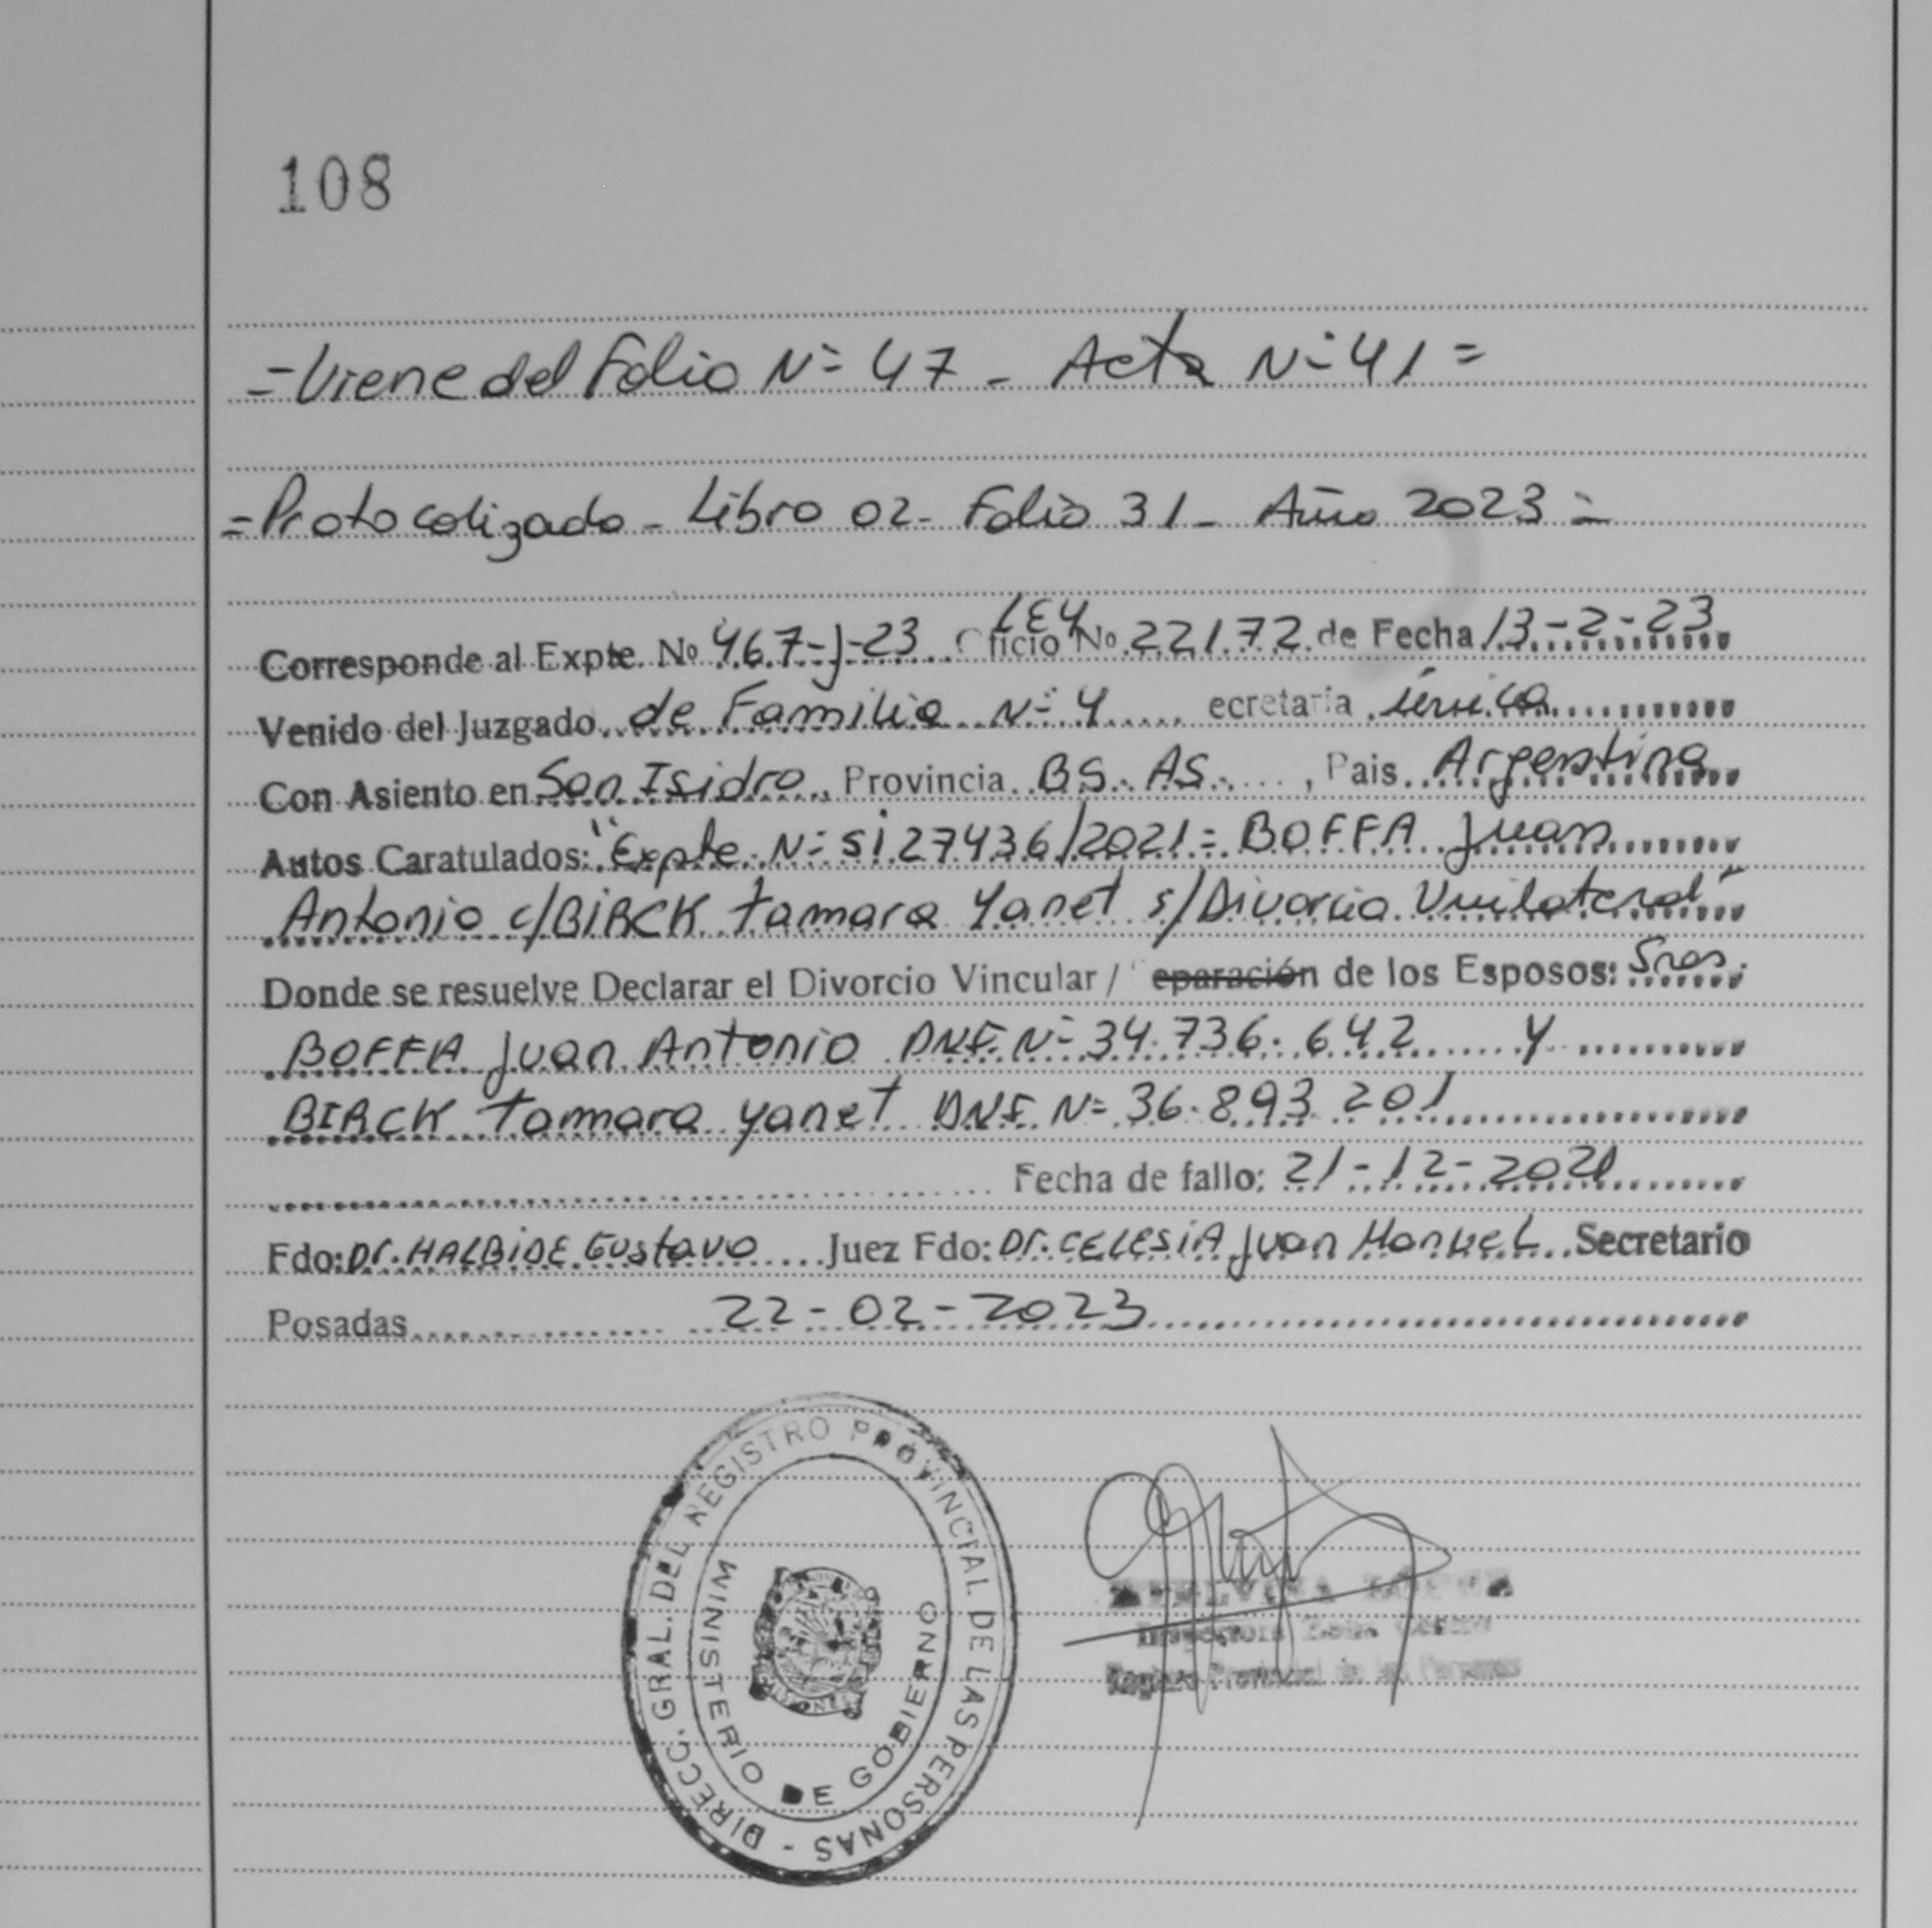 108
= Viene del Folio Nº 47 - Acta Nº 41 =
= Protocolizado - Libro 02 - Folio 31 - Año 2023 =
LEY
Corresponde al Expte. Nº 467-J-23 Oficio Nº 22172 de Fecha 13-2-23
Venido del Juzgado de Familia Nº 4 ecretaría única
Con Asiento en San Isidro, Provincia BS. AS. , Pais Argentina
Autos Caratulados: "Expte Nº Si 27436/2021 = BOFFA Juan
Antonio c/BIRCK Tamara Yanet s/Divorcio Unilateral"
Donde se resuelve Declarar el Divorcio Vincular / eparación de los Esposos: Sres.
BOFFA Juan Antonio DNI. Nº 34.736.642 y
BIRCK Tamara Yanet DNI. Nº 36.893.201
Fecha de fallo: 21-12-2021
Fdo: Dr. HALBIDE Gustavo Juez Fdo: Dr. CELESIA Juan Manuel Secretario
Posadas 22-02-2023
DIRECC. GRAL. DEL REGISTRO PROVINCIAL DE LAS PERSONAS -
MINISTERIO DE GOBIERNO
Registro Provincial de las Personas